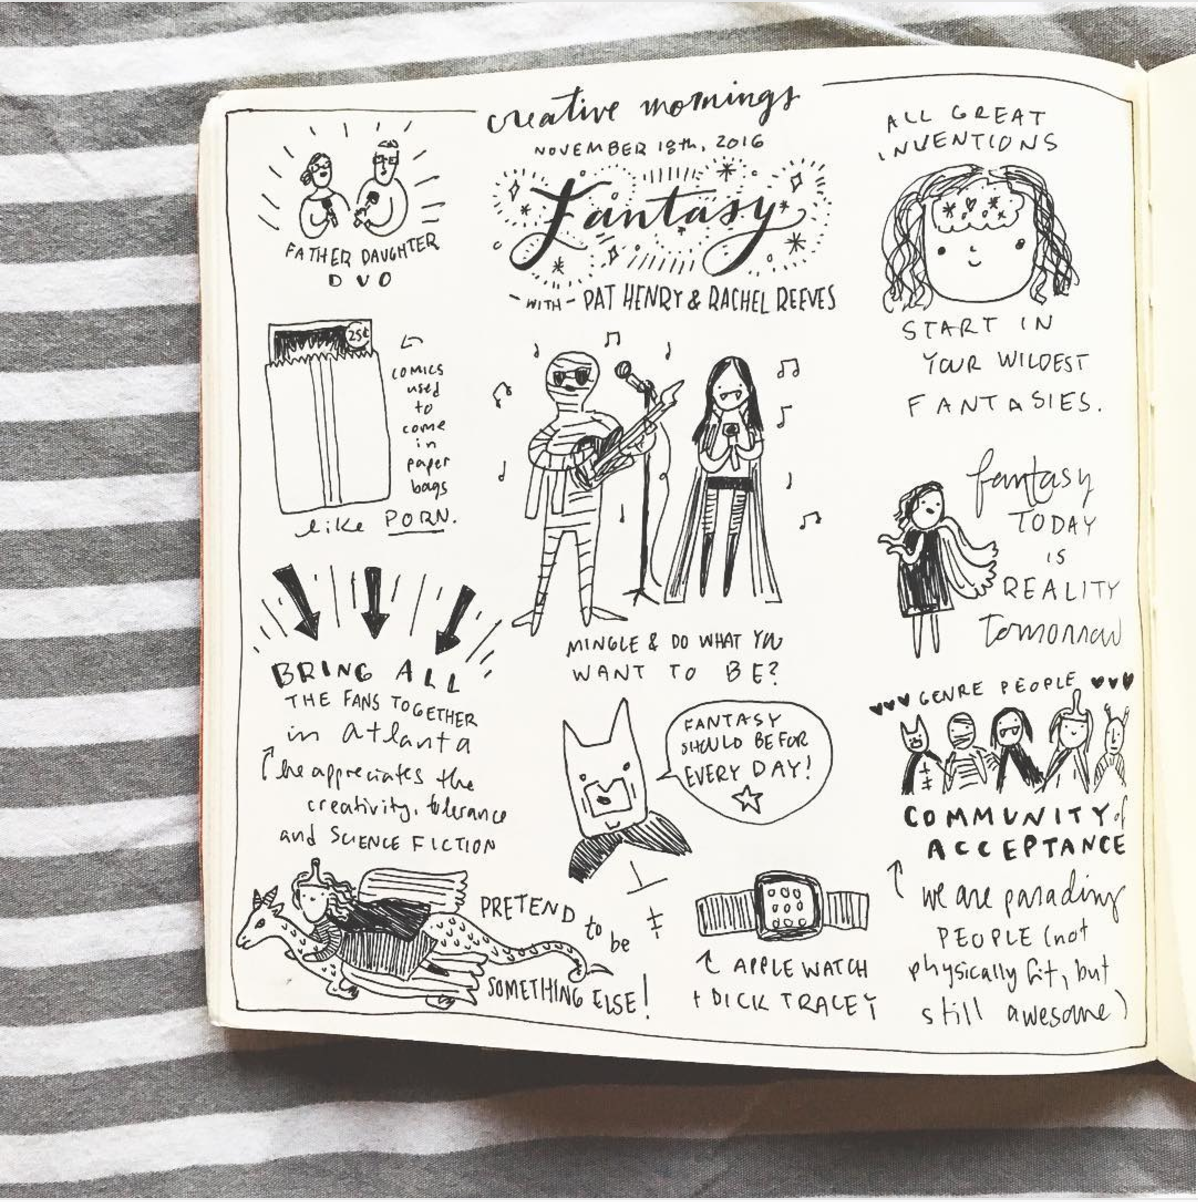 creative mornings
NOVEMBER 18th, 2016
Fantasy
- WITH - PAT HENRY & RACHEL REEVES
FATHER DAUGHTER
DUO
25¢
COMICS
used
to
come
in
paper
bags
like PORN.
BRING ALL
THE FANS TOGETHER
in atlanta
he appreciates the
creativity, tolerance
and SCIENCE FICTION
PRETEND to be
SOMETHING ELSE!
MINGLE & DO WHAT YOU
WANT TO BE?
FANTASY
SHOULD BE FOR
EVERY DAY!
APPLE WATCH
+ DICK TRACEY
ALL GREAT
INVENTIONS
START IN
YOUR WILDEST
FANTASIES.
fantasy
TODAY
IS
REALITY
tomorrow
GENRE PEOPLE
COMMUNITY of
ACCEPTANCE
we are parading
PEOPLE (not
physically fit, but
still awesome)